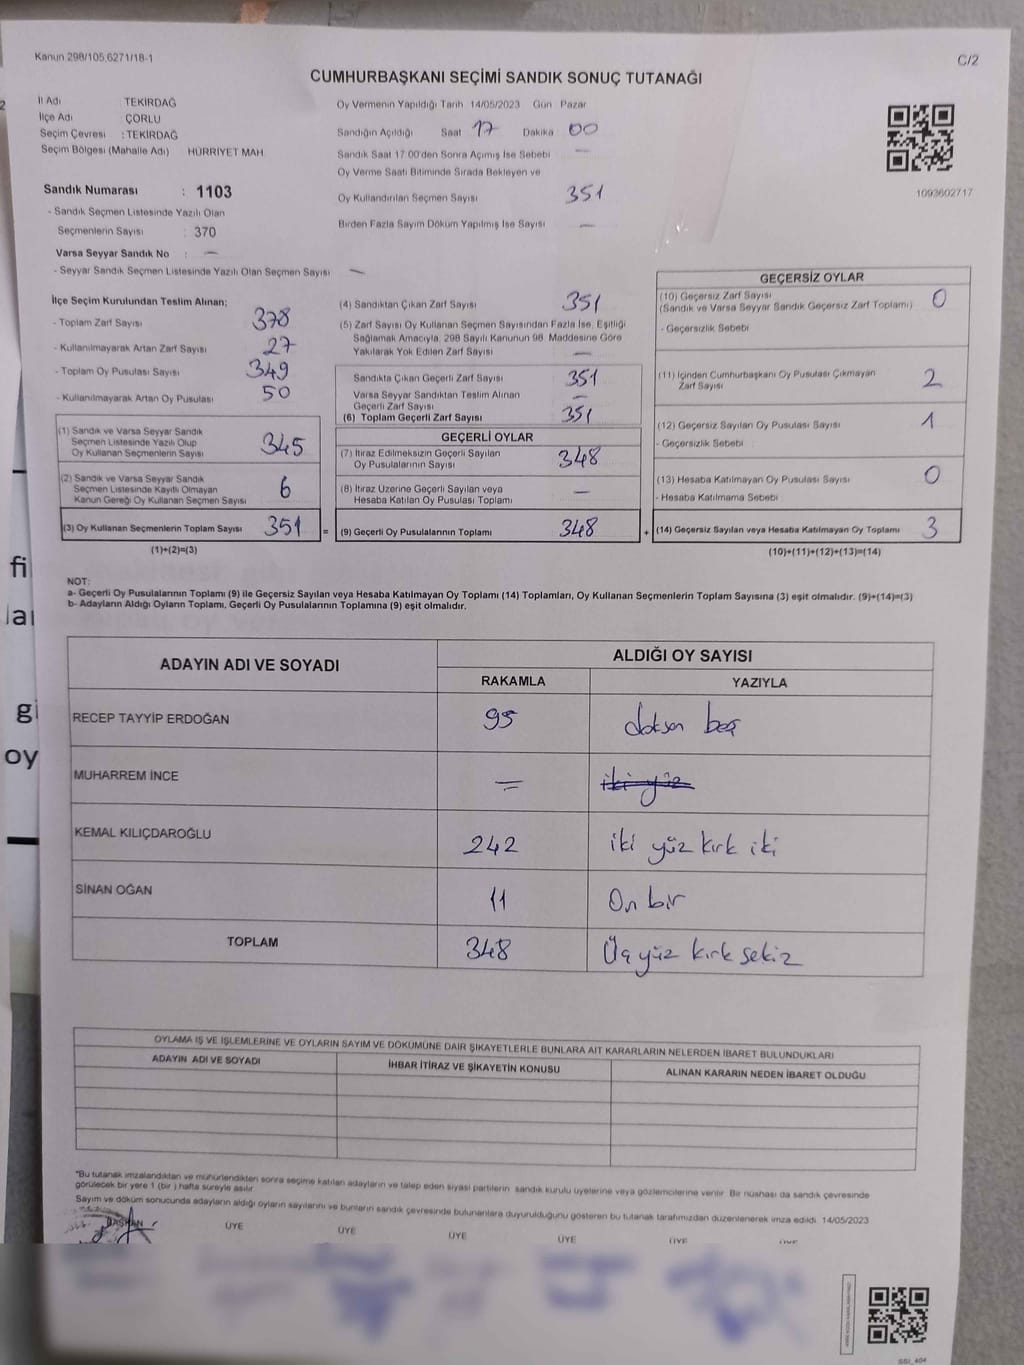 Kanun 298/105,6271/18-1
C/2
CUMHURBAŞKANI SEÇİMİ SANDIK SONUÇ TUTANAĞI
İl Adı : TEKİRDAĞ
İlçe Adı : ÇORLU
Seçim Çevresi : TEKİRDAĞ
Seçim Bölgesi (Mahalle Adı) HÜRRİYET MAH.
Sandık Numarası : 1103
- Sandık Seçmen Listesinde Yazılı Olan
Seçmenlerin Sayısı : 370
Varsa Seyyar Sandık No : —
- Seyyar Sandık Seçmen Listesinde Yazılı Olan Seçmen Sayısı —
Oy Vermenin Yapıldığı Tarih 14/05/2023 Gün Pazar
Sandığın Açıldığı Saat 17 Dakika 00
Sandık Saat 17.00'den Sonra Açımış İse Sebebi —
Oy Verme Saati Bitiminde Sırada Bekleyen ve
Oy Kullandırılan Seçmen Sayısı 351
Birden Fazla Sayım Döküm Yapılmış İse Sayısı —
1093602717
İlçe Seçim Kurulundan Teslim Alınan;
- Toplam Zarf Sayısı 378
- Kullanılmayarak Artan Zarf Sayısı 27
- Toplam Oy Pusulası Sayısı 349
- Kullanılmayarak Artan Oy Pusulası 50
(1) Sandık ve Varsa Seyyar Sandık
Seçmen Listesinde Yazılı Olup
Oy Kullanan Seçmenlerin Sayısı 345
(2) Sandık ve Varsa Seyyar Sandık
Seçmen Listesinde Kayıtlı Olmayan
Kanun Gereği Oy Kullanan Seçmen Sayısı 6
(3) Oy Kullanan Seçmenlerin Toplam Sayısı 351 =
(1)+(2)=(3)
(4) Sandıktan Çıkan Zarf Sayısı 351
(5) Zarf Sayısı Oy Kullanan Seçmen Sayısından Fazla İse, Eşitliği
Sağlamak Amacıyla, 298 Sayılı Kanunun 98. Maddesine Göre
Yakılarak Yok Edilen Zarf Sayısı —
Sandıkta Çıkan Geçerli Zarf Sayısı 351
Varsa Seyyar Sandıktan Teslim Alınan
Geçerli Zarf Sayısı —
(6) Toplam Geçerli Zarf Sayısı 351
GEÇERLİ OYLAR
(7) İtiraz Edilmeksizin Geçerli Sayılan
Oy Pusulalarının Sayısı 348
(8) İtiraz Üzerine Geçerli Sayılan veya
Hesaba Katılan Oy Pusulası Toplamı —
(9) Geçerli Oy Pusulalarının Toplamı 348 +
GEÇERSİZ OYLAR
(10) Geçersiz Zarf Sayısı
(Sandık ve Varsa Seyyar Sandık Geçersiz Zarf Toplamı) 0
- Geçersizlik Sebebi
(11) İçinden Cumhurbaşkanı Oy Pusulası Çıkmayan
Zarf Sayısı 2
(12) Geçersiz Sayılan Oy Pusulası Sayısı 1
- Geçersizlik Sebebi
(13) Hesaba Katılmayan Oy Pusulası Sayısı 0
- Hesaba Katılmama Sebebi
(14) Geçersiz Sayılan veya Hesaba Katılmayan Oy Toplamı 3
(10)+(11)+(12)+(13)=(14)
NOT:
a- Geçerli Oy Pusulalarının Toplamı (9) ile Geçersiz Sayılan veya Hesaba Katılmayan Oy Toplamı (14) Toplamları, Oy Kullanan Seçmenlerin Toplam Sayısına (3) eşit olmalıdır. (9)+(14)=(3)
b- Adayların Aldığı Oyların Toplamı, Geçerli Oy Pusulalarının Toplamına (9) eşit olmalıdır.
ADAYIN ADI VE SOYADI
ALDIĞI OY SAYISI
RAKAMLA YAZIYLA
RECEP TAYYİP ERDOĞAN 95 doksan beş
MUHARREM İNCE = iki yüz
KEMAL KILIÇDAROĞLU 242 iki yüz kırk iki
SİNAN OĞAN 11 On bir
TOPLAM 348 Üç yüz kırk sekiz
OYLAMA İŞ VE İŞLEMLERİNE VE OYLARIN SAYIM VE DÖKÜMÜNE DAİR ŞİKAYETLERLE BUNLARA AİT KARARLARIN NELERDEN İBARET BULUNDUKLARI
ADAYIN ADI VE SOYADI
İHBAR İTİRAZ VE ŞİKAYETİN KONUSU
ALINAN KARARIN NEDEN İBARET OLDUĞU
*Bu tutanak imzalandıktan ve mühürlendikten sonra seçime katılan adayların ve talep eden siyasi partilerin sandık kurulu üyelerine veya gözlemcilerine verilir. Bir nüshası da sandık çevresinde
görülecek bir yere 1 (bir ) hafta süreyle asılır.
Sayım ve döküm sonucunda adayların aldığı oyların sayılarını ve bunların sandık çevresinde bulunanlara duyurulduğunu gösteren bu tutanak tarafımızdan düzenlenerek imza edildi. 14/05/2023
BAŞKAN ÜYE ÜYE ÜYE ÜYE ÜYE
fi
gi
oy